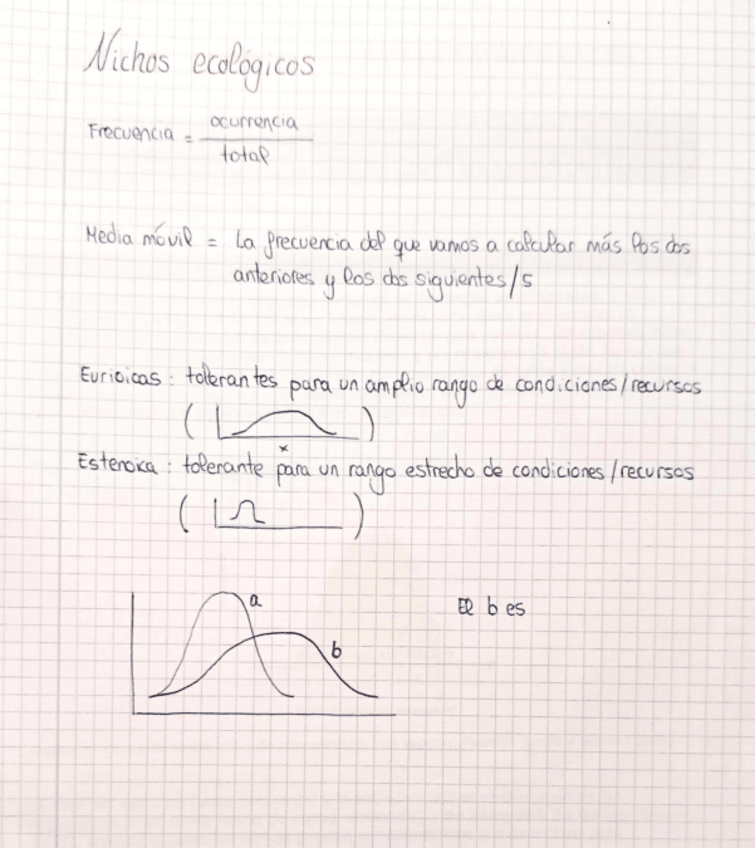 Nichos ecológicos
Frecuencia = ocurrencia
total
Media móvil = La frecuencia del que vamos a calcular más los dos
anteriores y los dos siguientes/5
Eurioicas: tolerantes para un amplio rango de condiciones/recursos
( )
x
Estenoica: tolerante para un rango estrecho de condiciones/recursos
( )
a
b
El b es